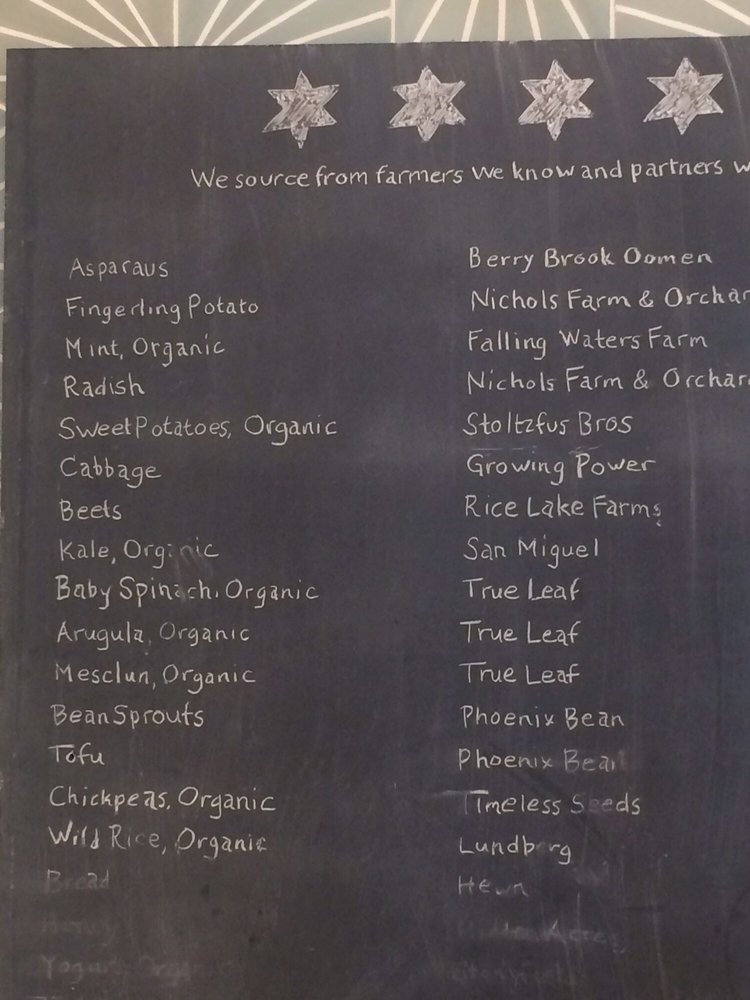 We source from farmers we know and partners w
Asparaus Berry Brook Oomen
Fingerling Potato Nichols Farm & Orchar
Mint, Organic Falling Waters Farm
Radish Nichols Farm & Orchar
Sweet Potatoes, Organic Stoltzfus Bros
Cabbage Growing Power
Beets Rice Lake Farms
Kale, Organic San Miguel
Baby Spinach, Organic True Leaf
Arugula, Organic True Leaf
Mesclun, Organic True Leaf
Bean Sprouts Phoenix Bean
Tofu Phoenix Bean
Chickpeas, Organic Timeless Seeds
Wild Rice, Organic Lundberg
Bread Hewn
Honey
Yogurt, Organic